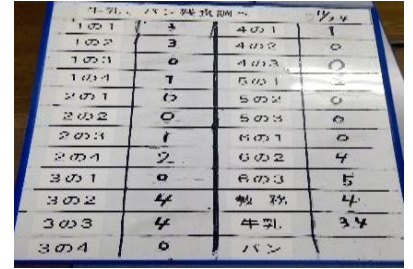 牛乳、パン残食調べ 11/24
1の1 3 4の1 1
1の2 3 4の2 0
1の3 0 4の3 0
1の4 7 5の1
2の1 0 5の2 0
2の2 0 5の3 0
2の3 1 6の1 0
2の4 2 6の2 4
3の1 0 6の3 5
3の2 4 教務 4
3の3 4 牛乳 34
3の4 0 パン